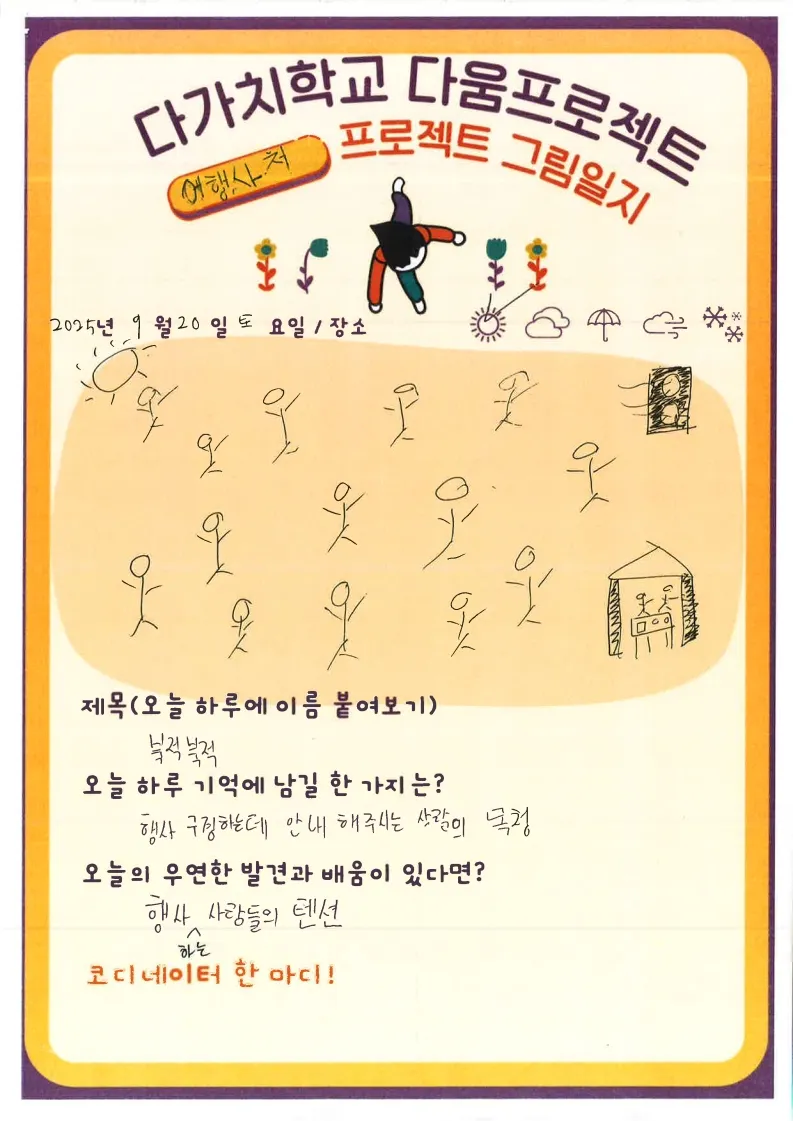 다가치학교 다움프로젝트
프로젝트 그림일지
여행사처
2025년 9월 20일 토요일 / 장소
제목(오늘 하루에 이름 붙여보기)
북적북적
오늘 하루 기억에 남길 한 가지는?
행사 구경하는데 안내 해주시는 사람의 목청
오늘의 우연한 발견과 배움이 있다면?
행사 하는 사람들의 텐션
코디네이터 한 마디!